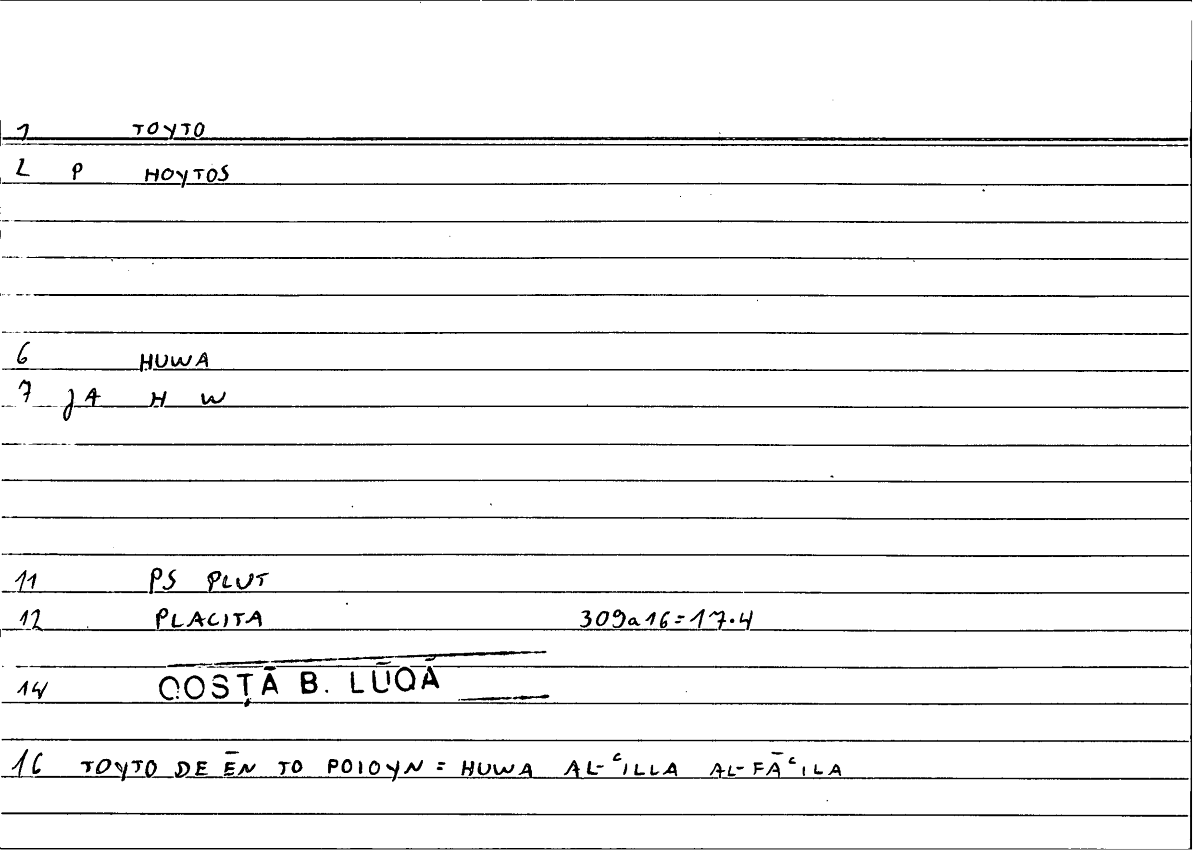 1 TOYTO
2 P HOYTOS
6 HUWA
7 JA H W
11 PS PLUT
12 PLACITA 309a16=17.4
14 QOSṬĀ B. LŪQĀ
16 TOYTO DE ĒN TO POIOYN = HUWA AL-ʿILLA AL-FĀʿILA